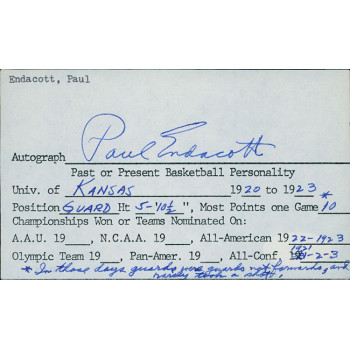 Endacott, Paul
Paul Endacott
Autograph
Past or Present Basketball Personality
Univ. of KANSAS 1920 to 1923
Position GUARD Ht 5-10½ ", Most Points one Game 10 *
Championships Won or Teams Nominated On:
A.A.U. 19___, N.C.A.A. 19___, All-American 1922-1923
Olympic Team 19___, Pan-Amer. 19___, All-Conf. 1921-2-3
* In those days guards were guards not forwards, and
rarely took a shot.